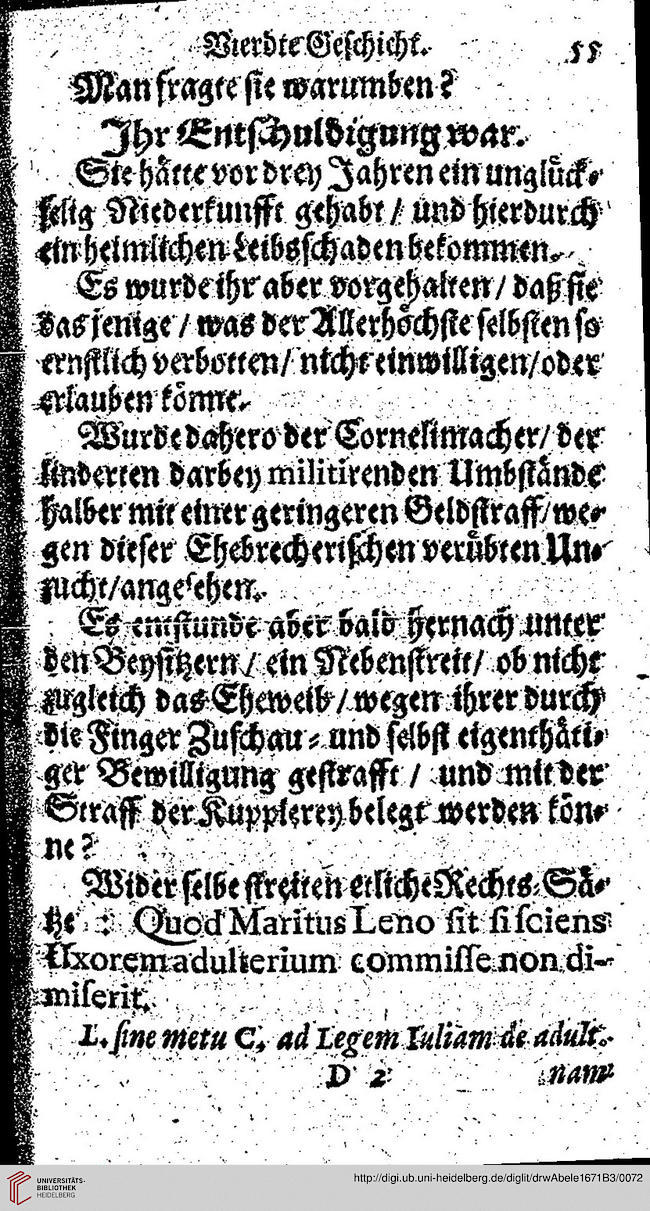 Vierdte Geschicht. 55
Man fragte sie warumben?
Ihr Entschuldigung war.
Sie hätte vor drey Jahren ein unglück-
selig Niederkunfft gehabt / und hierdurch
ein heimlichen Leibsschaden bekommen.
Es wurde ihr aber vorgehalten / daß sie
das jenige / was der Allerhöchste selbsten so
ernstlich verbotten / nicht einwilligen / oder
erlauben könne.
Wurde dahero der Cornelimacher / der
linderten darbey militirenden Umbstände
halber mit einer geringeren Geldstraff / we-
gen dieser Ehebrecherischen verübten Un-
zucht / angesehen.
Es entstunde aber bald hernach unter
den Beysitzern / ein Nebenstreit / ob nicht
zugleich das Eheweib / wegen ihrer durch
die Finger Zuschau- und selbst eigenthäti-
ger Bewilligung gestrafft / und mit der
Straff der Kupplerey belegt werden kön-
ne?
Wider selbe streiten etliche Rechts-Sä-
tze : Quod Maritus Leno sit si sciens
Uxorem adulterium commisse non di-
miserit.
L. sine metu C. ad Legem Iuliam de adult.
D 2 nam
UNIVERSITÄTS-
BIBLIOTHEK
HEIDELBERG
http://digi.ub.uni-heidelberg.de/diglit/drwAbele1671B3/0072